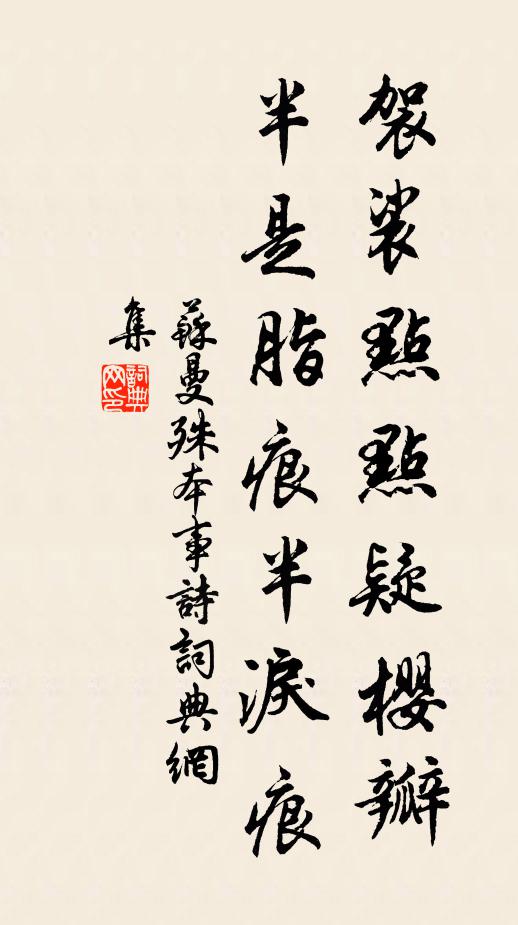 袈裟點點疑櫻瓣
半是脂痕半淚痕
蘇曼殊本事詩詞典網
集
詞典网印